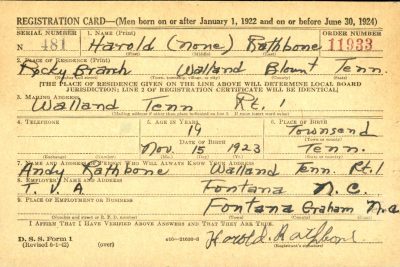 REGISTRATION CARD—(Men born on or after January 1, 1922 and on or before June 30, 1924)
SERIAL NUMBER 1. NAME (Print) ORDER NUMBER
N 481 Harold (none) Rathbone 11933
2. PLACE OF RESIDENCE (Print)
Rocky Branch Walland Blount Tenn.
[THE PLACE OF RESIDENCE GIVEN ON THE LINE ABOVE WILL DETERMINE LOCAL BOARD
JURISDICTION; LINE 2 OF REGISTRATION CERTIFICATE WILL BE IDENTICAL]
3. MAILING ADDRESS
Walland Tenn Rt. 1
[Mailing address if other than place indicated on line 2. If same insert word same]
4. TELEPHONE 5. AGE IN YEARS 6. PLACE OF BIRTH
19 Townsend
DATE OF BIRTH
Nov. 15 1923 Tenn.
(Exchange) (Number) (Mo.) (Day) (Yr.) (State or country)
7. NAME AND ADDRESS OF PERSON WHO WILL ALWAYS KNOW YOUR ADDRESS
Andy Rathbone Walland Tenn. Rt. 1
8. EMPLOYER'S NAME AND ADDRESS
T. V. A. Fontana N. C.
9. PLACE OF EMPLOYMENT OR BUSINESS
Fontana Graham N.C.
(Number and street or R. F. D. number) (Town) (County) (State)
I AFFIRM THAT I HAVE VERIFIED ABOVE ANSWERS AND THAT THEY ARE TRUE.
D. S. S. Form 1
(Revised 6-1-42) (over) Harold. Rathbone